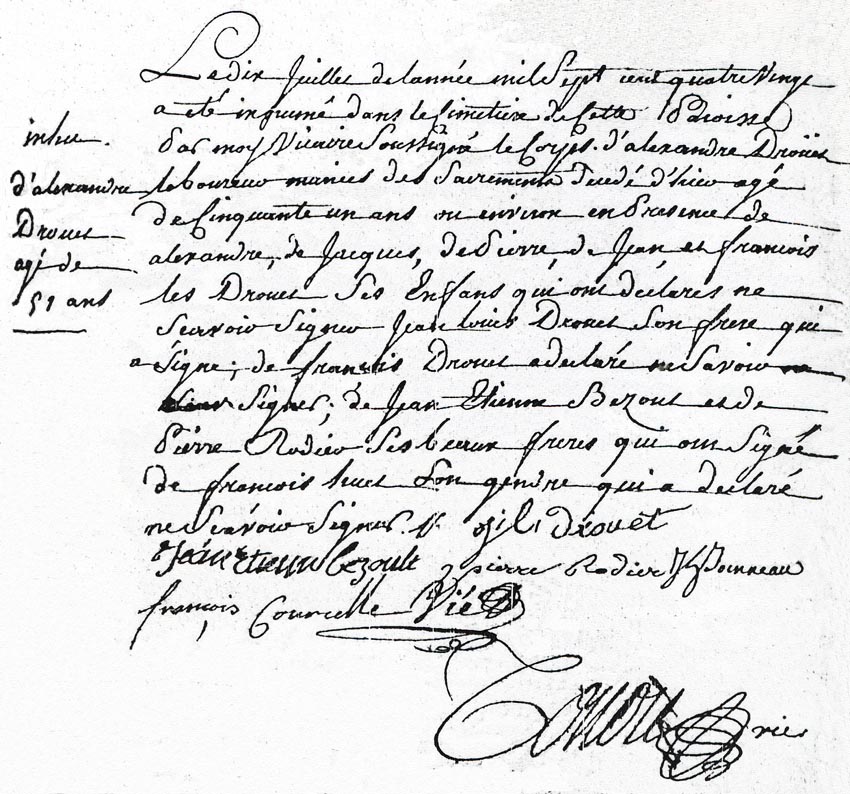 inhu.
d'alexandre
Drouet
agé de
51 ans
Le dix Juillet de l'année mil Sept cent quatre Vingt
a été inhumé dans le Cimetiere de Cette Paroisse
Par moy Vicaire Soussigné le Corps d'alexandre Drouet
laboureur munies des Sacrements decedé d'hier agé
de Cinquante un ans ou environ en Presence de
alexandre, de Jacques, de Pierre, de Jean et francois
les Drouet Ses Enfans qui ont déclares ne
Scavoir Signer Jean louis Drouet Son frere qui
a Signe; de francois Drouet a declaré ne Savoir
Signer; de Jean Etienne Bezout et de
Pierre Rodier Ses beaux freres qui ont Signé
de francois huet Son gendre qui a declaré
ne Scavoir Signer. j l drouet
Jean Etienne bezoult pierre Rodier Jonneau
françois Courcelle Vié
vic